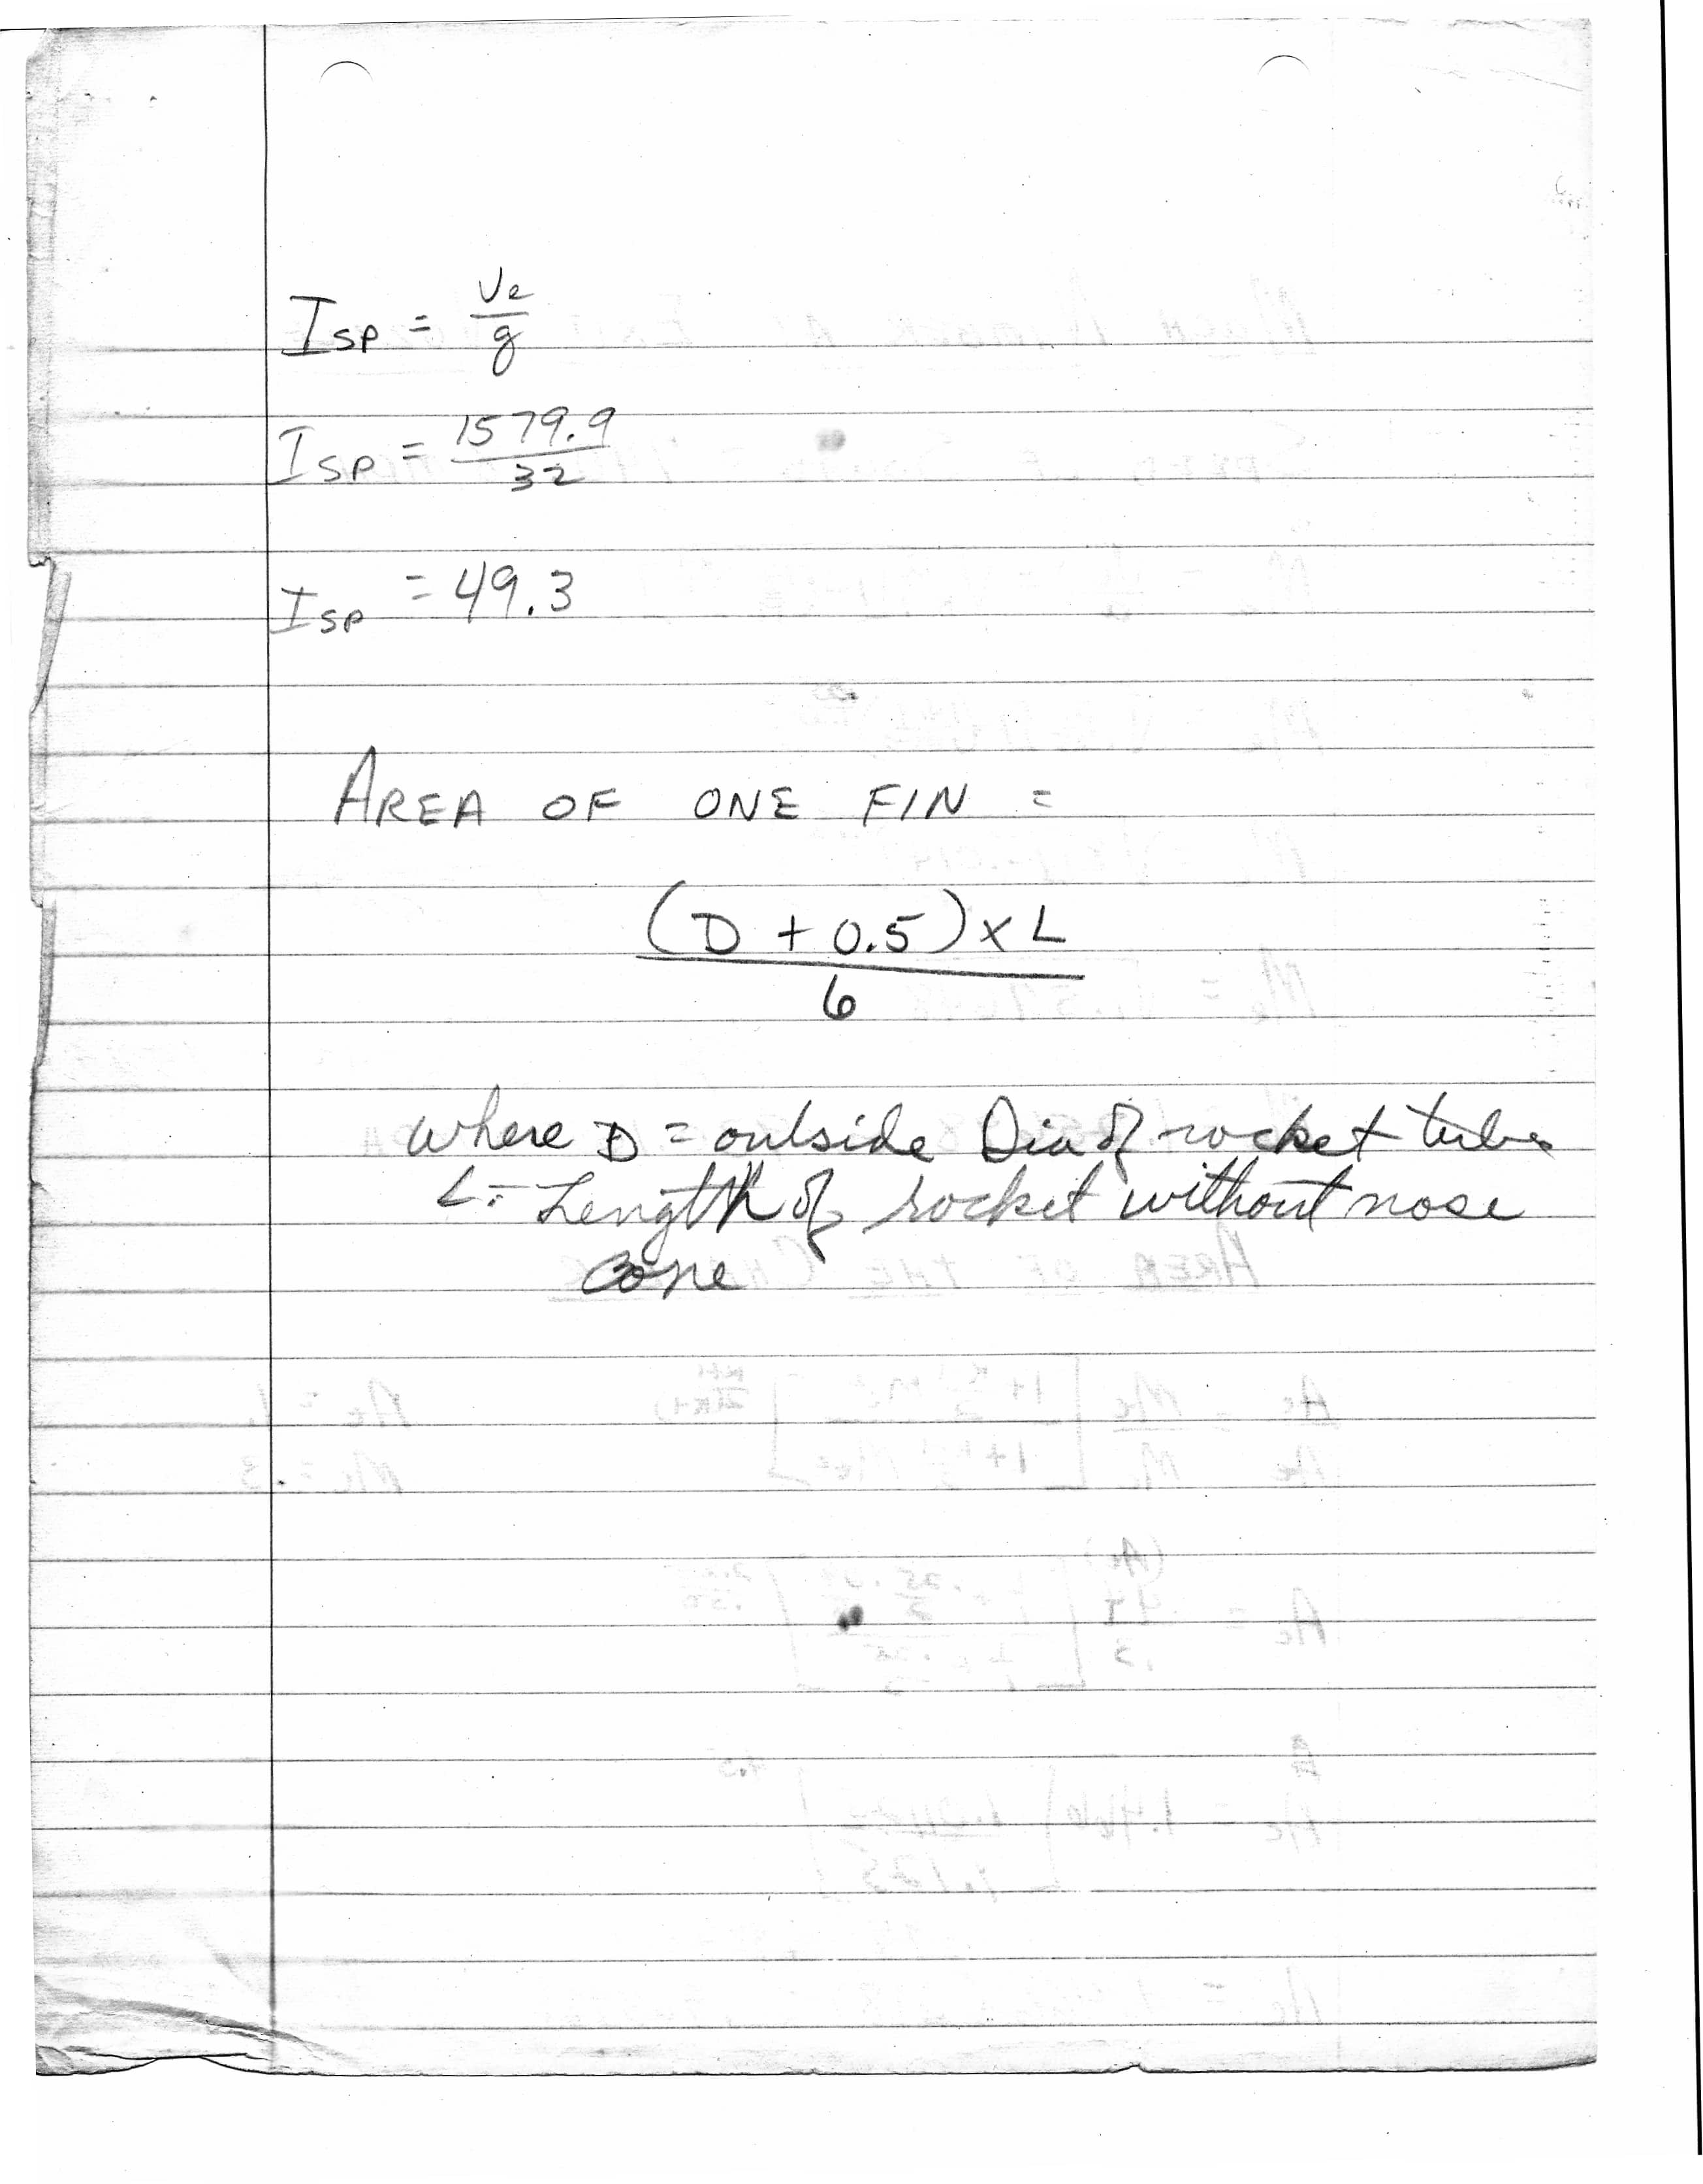 Isp = Ve/g
Isp = 1579.9/32
Isp = 49.3
AREA OF ONE FIN =
(D + 0.5) x L
6
where D = outside Dia of rocket tube
L = Length of rocket without nose
cone